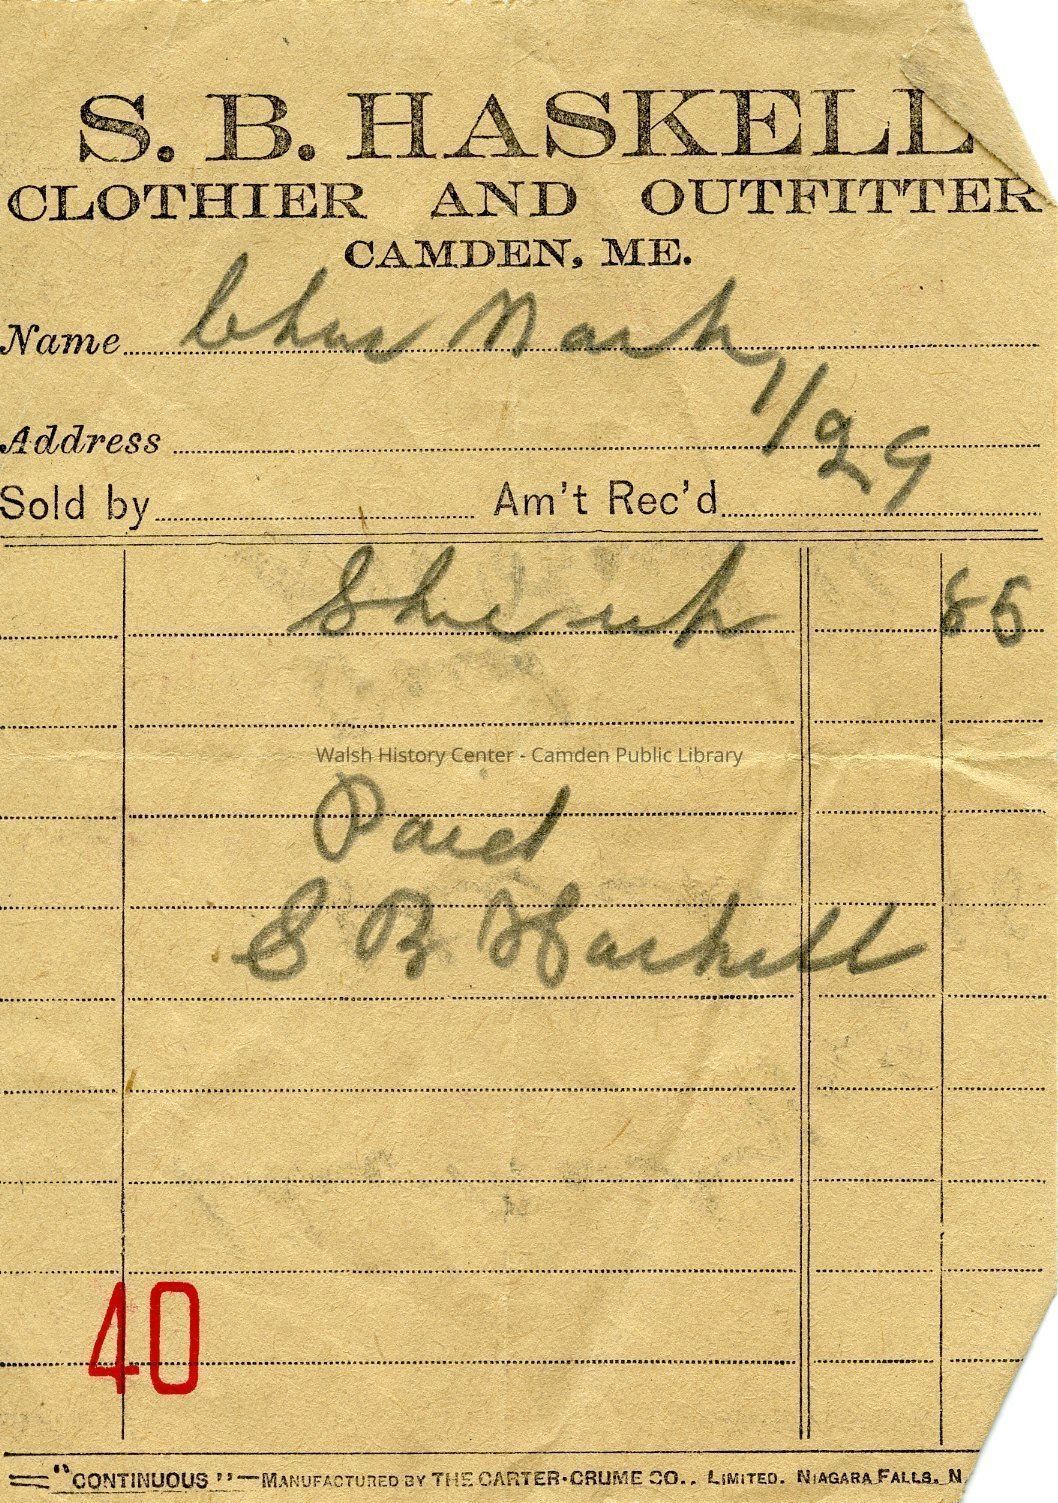 S. B. HASKELL
CLOTHIER AND OUTFITTER
CAMDEN, ME.
Name Chas Nash
Address 1/29
Sold by Am't Rec'd
85
Walsh History Center - Camden Public Library
Paid
S B Haskell
40
"CONTINUOUS" — MANUFACTURED BY THE CARTER-CRUME CO., LIMITED. NIAGARA FALLS, N.